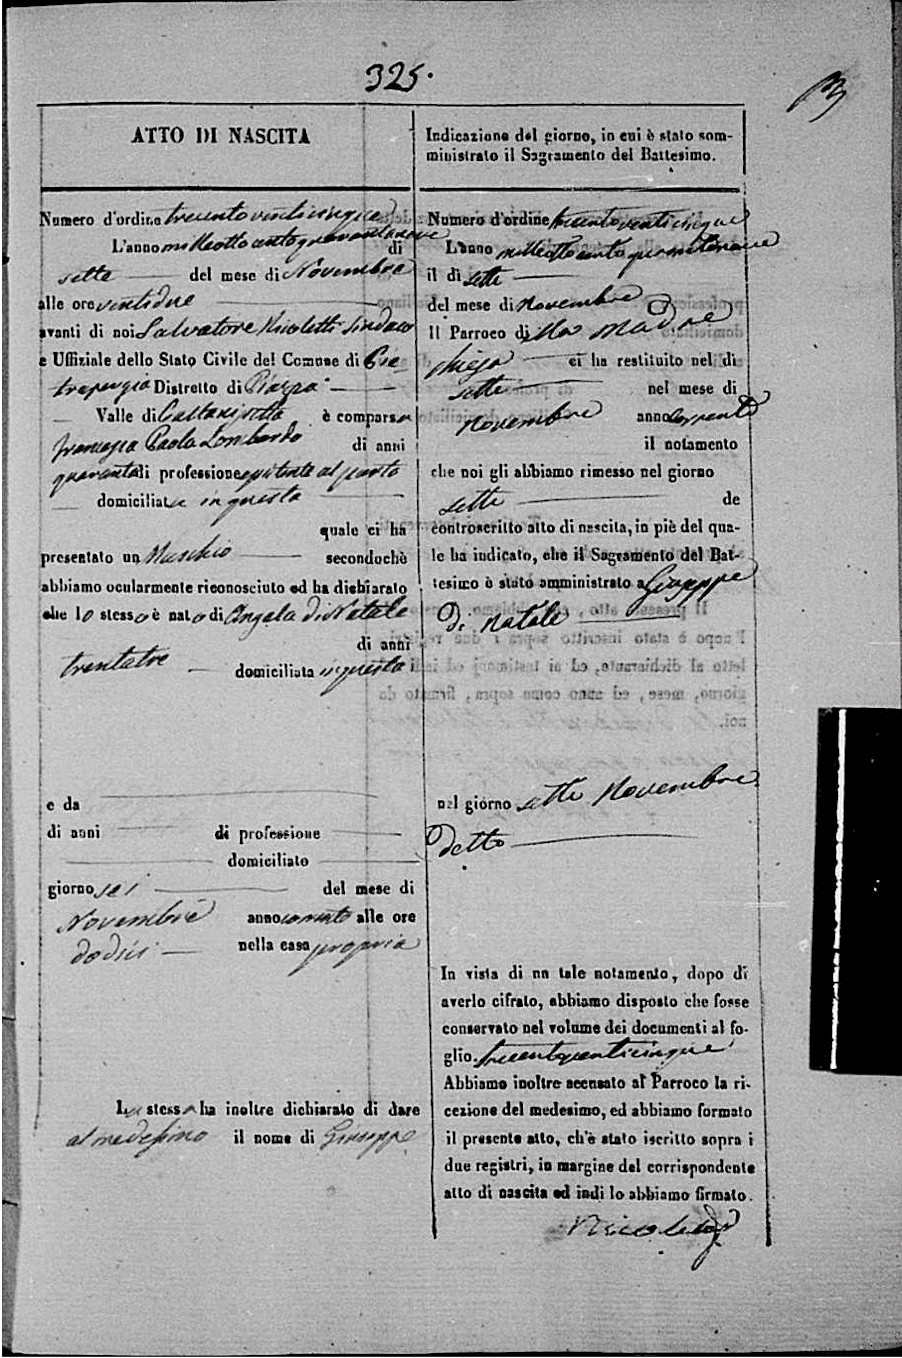 325.
ATTO DI NASCITA
Numero d'ordine trecentoventicinque
L'anno milleottocentoquarantanove di
sette del mese di Novembre
alle ore ventidue
avanti di noi Salvatore Nicoletti Sindaco
e Uffiziale dello Stato Civile del Comune di Pie-
traperzia Distretto di Piazza
Valle di Caltanissetta è comparsa
Francesca Paola Lombardo di anni
quaranta di professione assistente al parto
domiciliata in questa
quale ci ha
presentato un Maschio secondochè
abbiamo ocularmente riconosciuto ed ha dichiarato
che lo stesso è nato di Angela di Natale
di anni
trentatre domiciliata in questa
e da
di anni di professione
domiciliato
giorno sei del mese di
Novembre anno corrente alle ore
dodici nella casa propria
La stessa ha inoltre dichiarato di dare
al medesimo il nome di Giuseppe
Indicazione del giorno, in cui è stato som-
ministrato il Sagramento del Battesimo.
Numero d'ordine trecentoventicinque
L'anno milleottocentoquarantanove
il dì sette
del mese di Novembre
Il Parroco della Madre
Chiesa ci ha restituito nel dì
sette nel mese di
Novembre anno corrente
il notamento
che noi gli abbiamo rimesso nel giorno
sette de
controscritto atto di nascita, in piè del qua-
le ha indicato, che il Sagramento del Bat-
tesimo è stato amministrato a Giuseppe
di Natale
nel giorno sette Novembre
detto
In vista di un tale notamento, dopo di
averlo cifrato, abbiamo disposto che fosse
conservato nel volume dei documenti al fo-
glio. trecentoventicinque
Abbiamo inoltre accusato al Parroco la ri-
cezione del medesimo, ed abbiamo formato
il presente atto, ch'è stato iscritto sopra i
due registri, in margine del corrispondente
atto di nascita ed indi lo abbiamo firmato.
Nicoletti